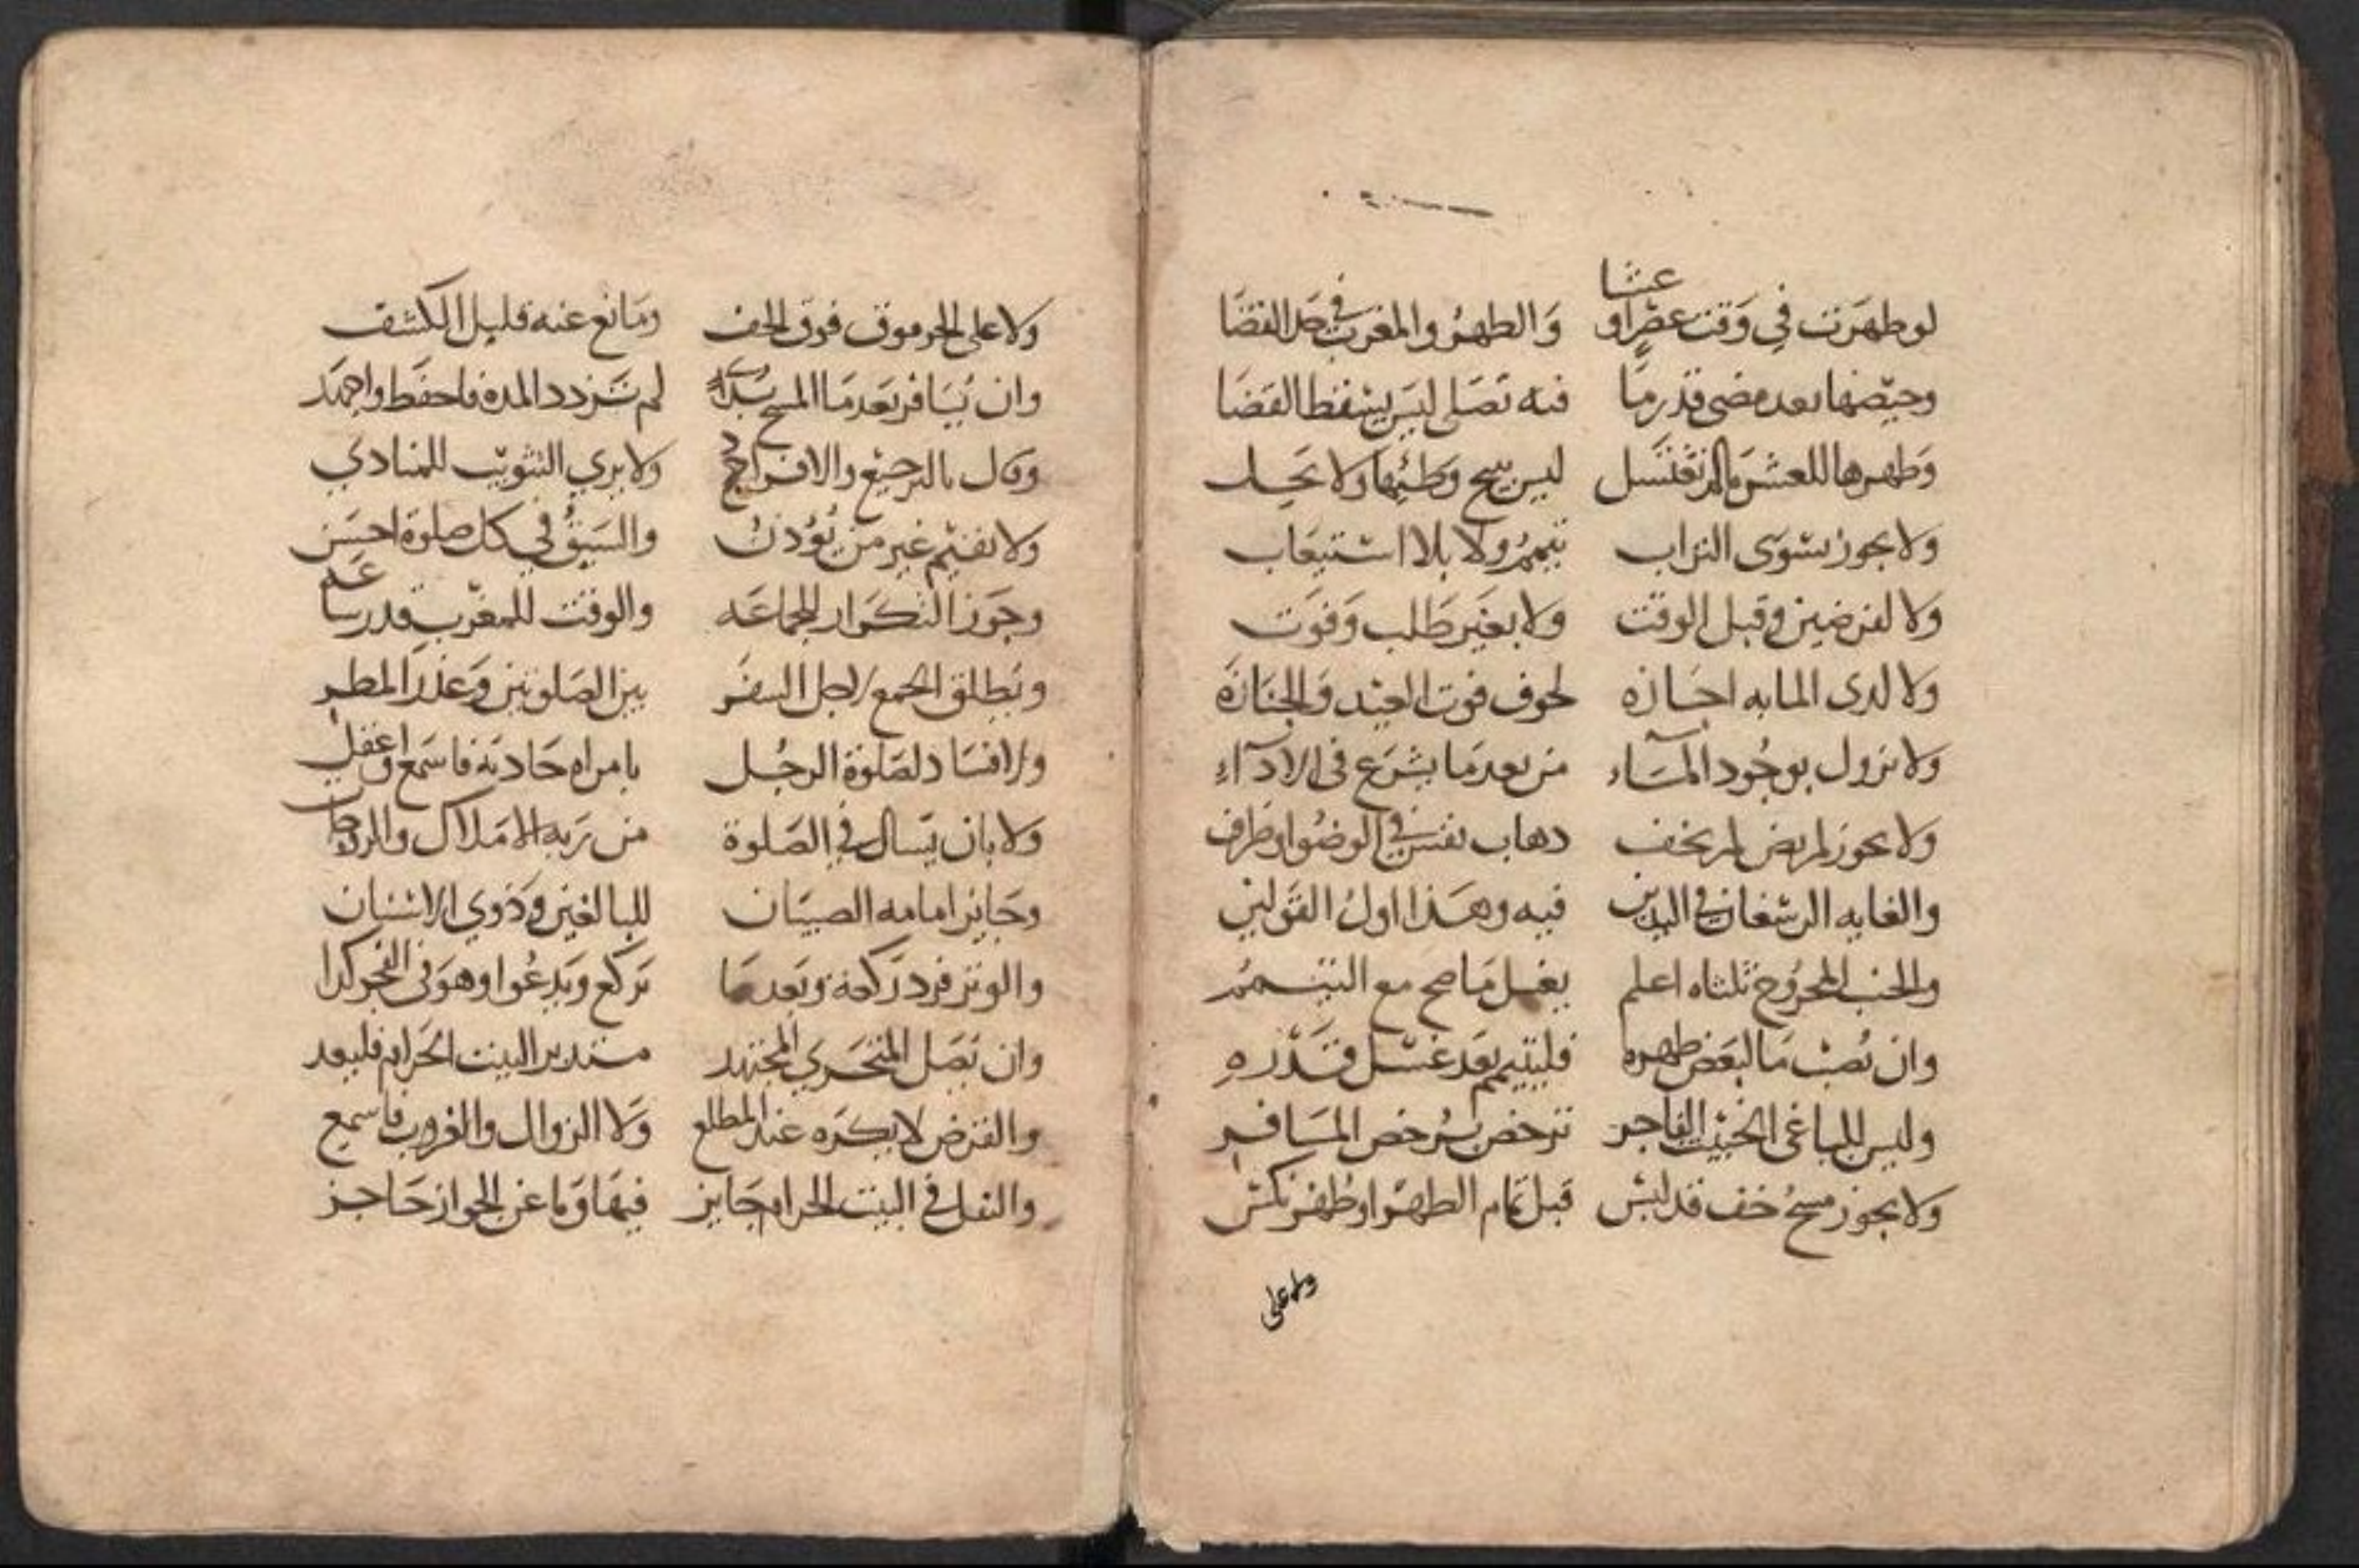 لو طهرت في وقت عصر او عشا والظهر والمغرب في حد القضا
وحيضها بعد مضي قدر ما فيه تصلى ليس يسقط القضا
وطهرها للعشر ما لم تغتسل ليس يبيح وطئها ولا تحل
ولا يجوز بسوى التراب تيمم ولا بلا استيعاب
ولا لفرضين وقبل الوقت ولا بغير طلب وفوت
ولا لدى المابه اجازه لخوف فوت العيد والجنازة
ولا تزول بوجود الماء من بعد ما يشرع في الاداء
ولا يجوز لمريض لم يخف ذهاب نفس في الوضوا وطرف
والغايه الرسغان في اليدين فيه وهذا اول القولين
والجنب المجروح ثلثاه اعلم يغسل ما صح مع التيمم
وان يصب ما لبعض طهره فليتيمم بعد غسل قدره
وليس للباغي الخبيث الفاجر ترخص برخص المسافر
ولا يجوز مسح خف قد لبس قبل تمام الطهر او طهر نكس
ولا على
ولا على الجرموق فوق الخف ومانع عنه قليل الكشف
وان يسافر بعد ما المسح بدا لم تزدد المدة فاحفظ واجهد
وقال بالترجيع والافراد ولا يرى التثويب للمنادي
ولا يقيم غير من يؤذن والسبق في كل صلوة احسن
وجوز التكرار للجماعه والوقت للمغرب قدر ساعه
ويطلق الجمع لاجل السفر بين الصلوتين وعذر المطر
ولا افساد لصلوة الرجل بامراه حاذته فاسمع واعقل
ولا بان يسال في الصلوة من ربه الاملاك والزوجات
وجايز امامه الصبيان للبالغين وذوي الاسنان
والوتر فرد ركعة وبعدما تركع ويدعوا وهو في الفجر كذا
وان يصل المتحري المجتهد مستدبر البيت الحرام فليعد
والفرض لا يكره عند المطلع ولا الزوال والغروب فاسمع
والنفل في البيت الحرام جايز فيها وما عن الجواز حاجز